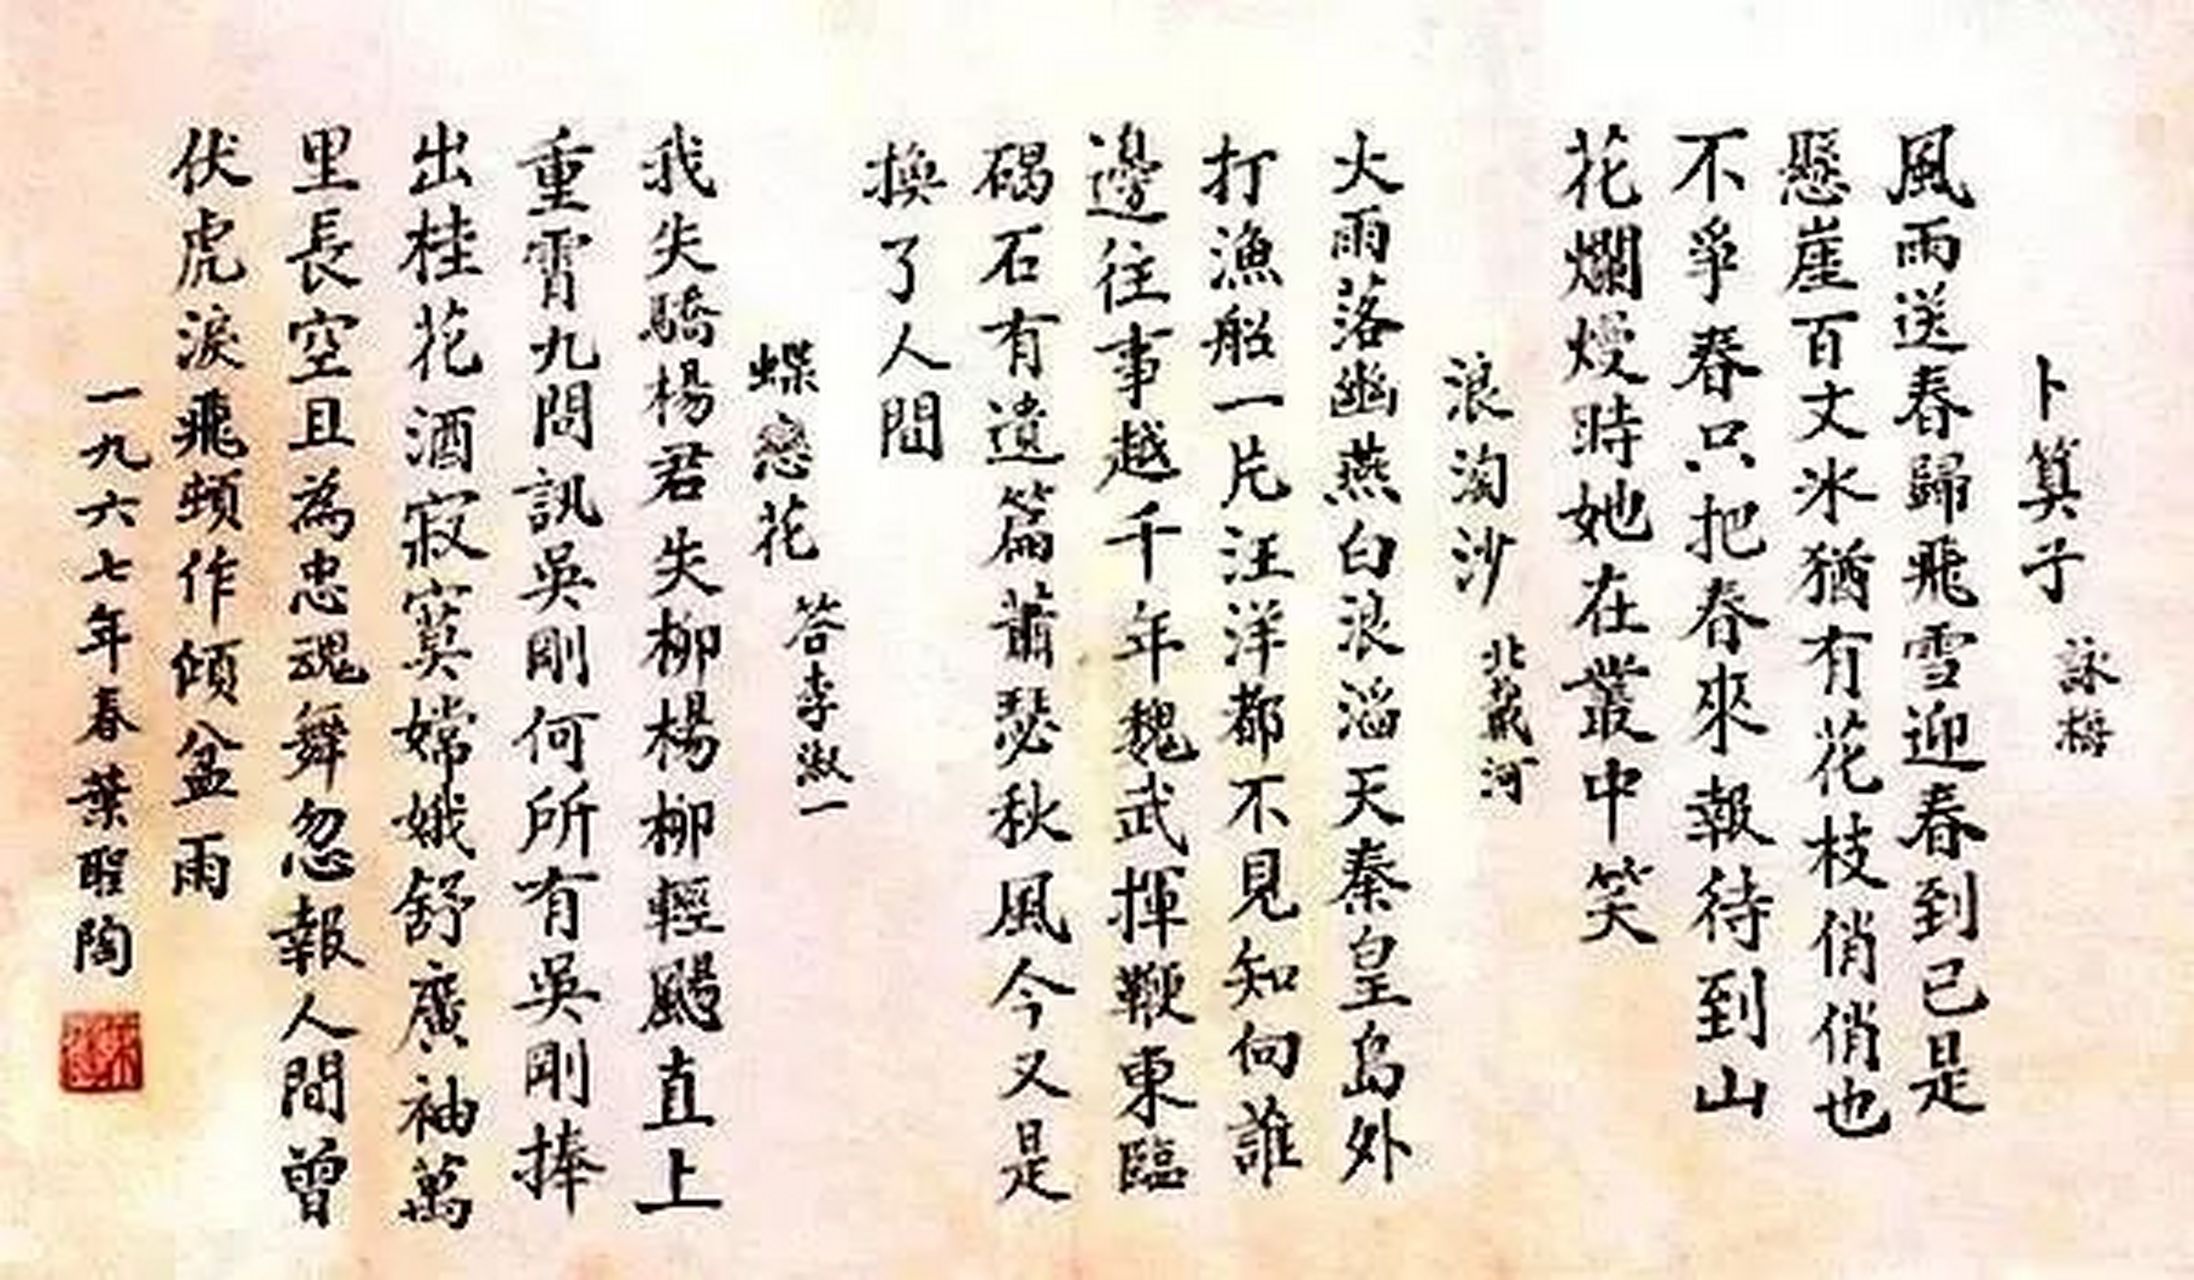 卜算子 詠梅
風雨送春歸飛雪迎春到已是
懸崖百丈冰猶有花枝俏俏也
不爭春只把春來報待到山
花爛熳時她在叢中笑
浪淘沙 北戴河
大雨落幽燕白浪滔天秦皇島外
打漁船一片汪洋都不見知向誰
邊往事越千年魏武揮鞭東臨
碣石有遺篇蕭瑟秋風今又是
換了人間
蝶戀花 答李淑一
我失驕楊君失柳楊柳輕颺直上
重霄九問訊吳剛何所有吳剛捧
出桂花酒寂寞嫦娥舒廣袖萬
里長空且為忠魂舞忽報人間曾
伏虎淚飛頓作傾盆雨
一九六七年春葉聖陶